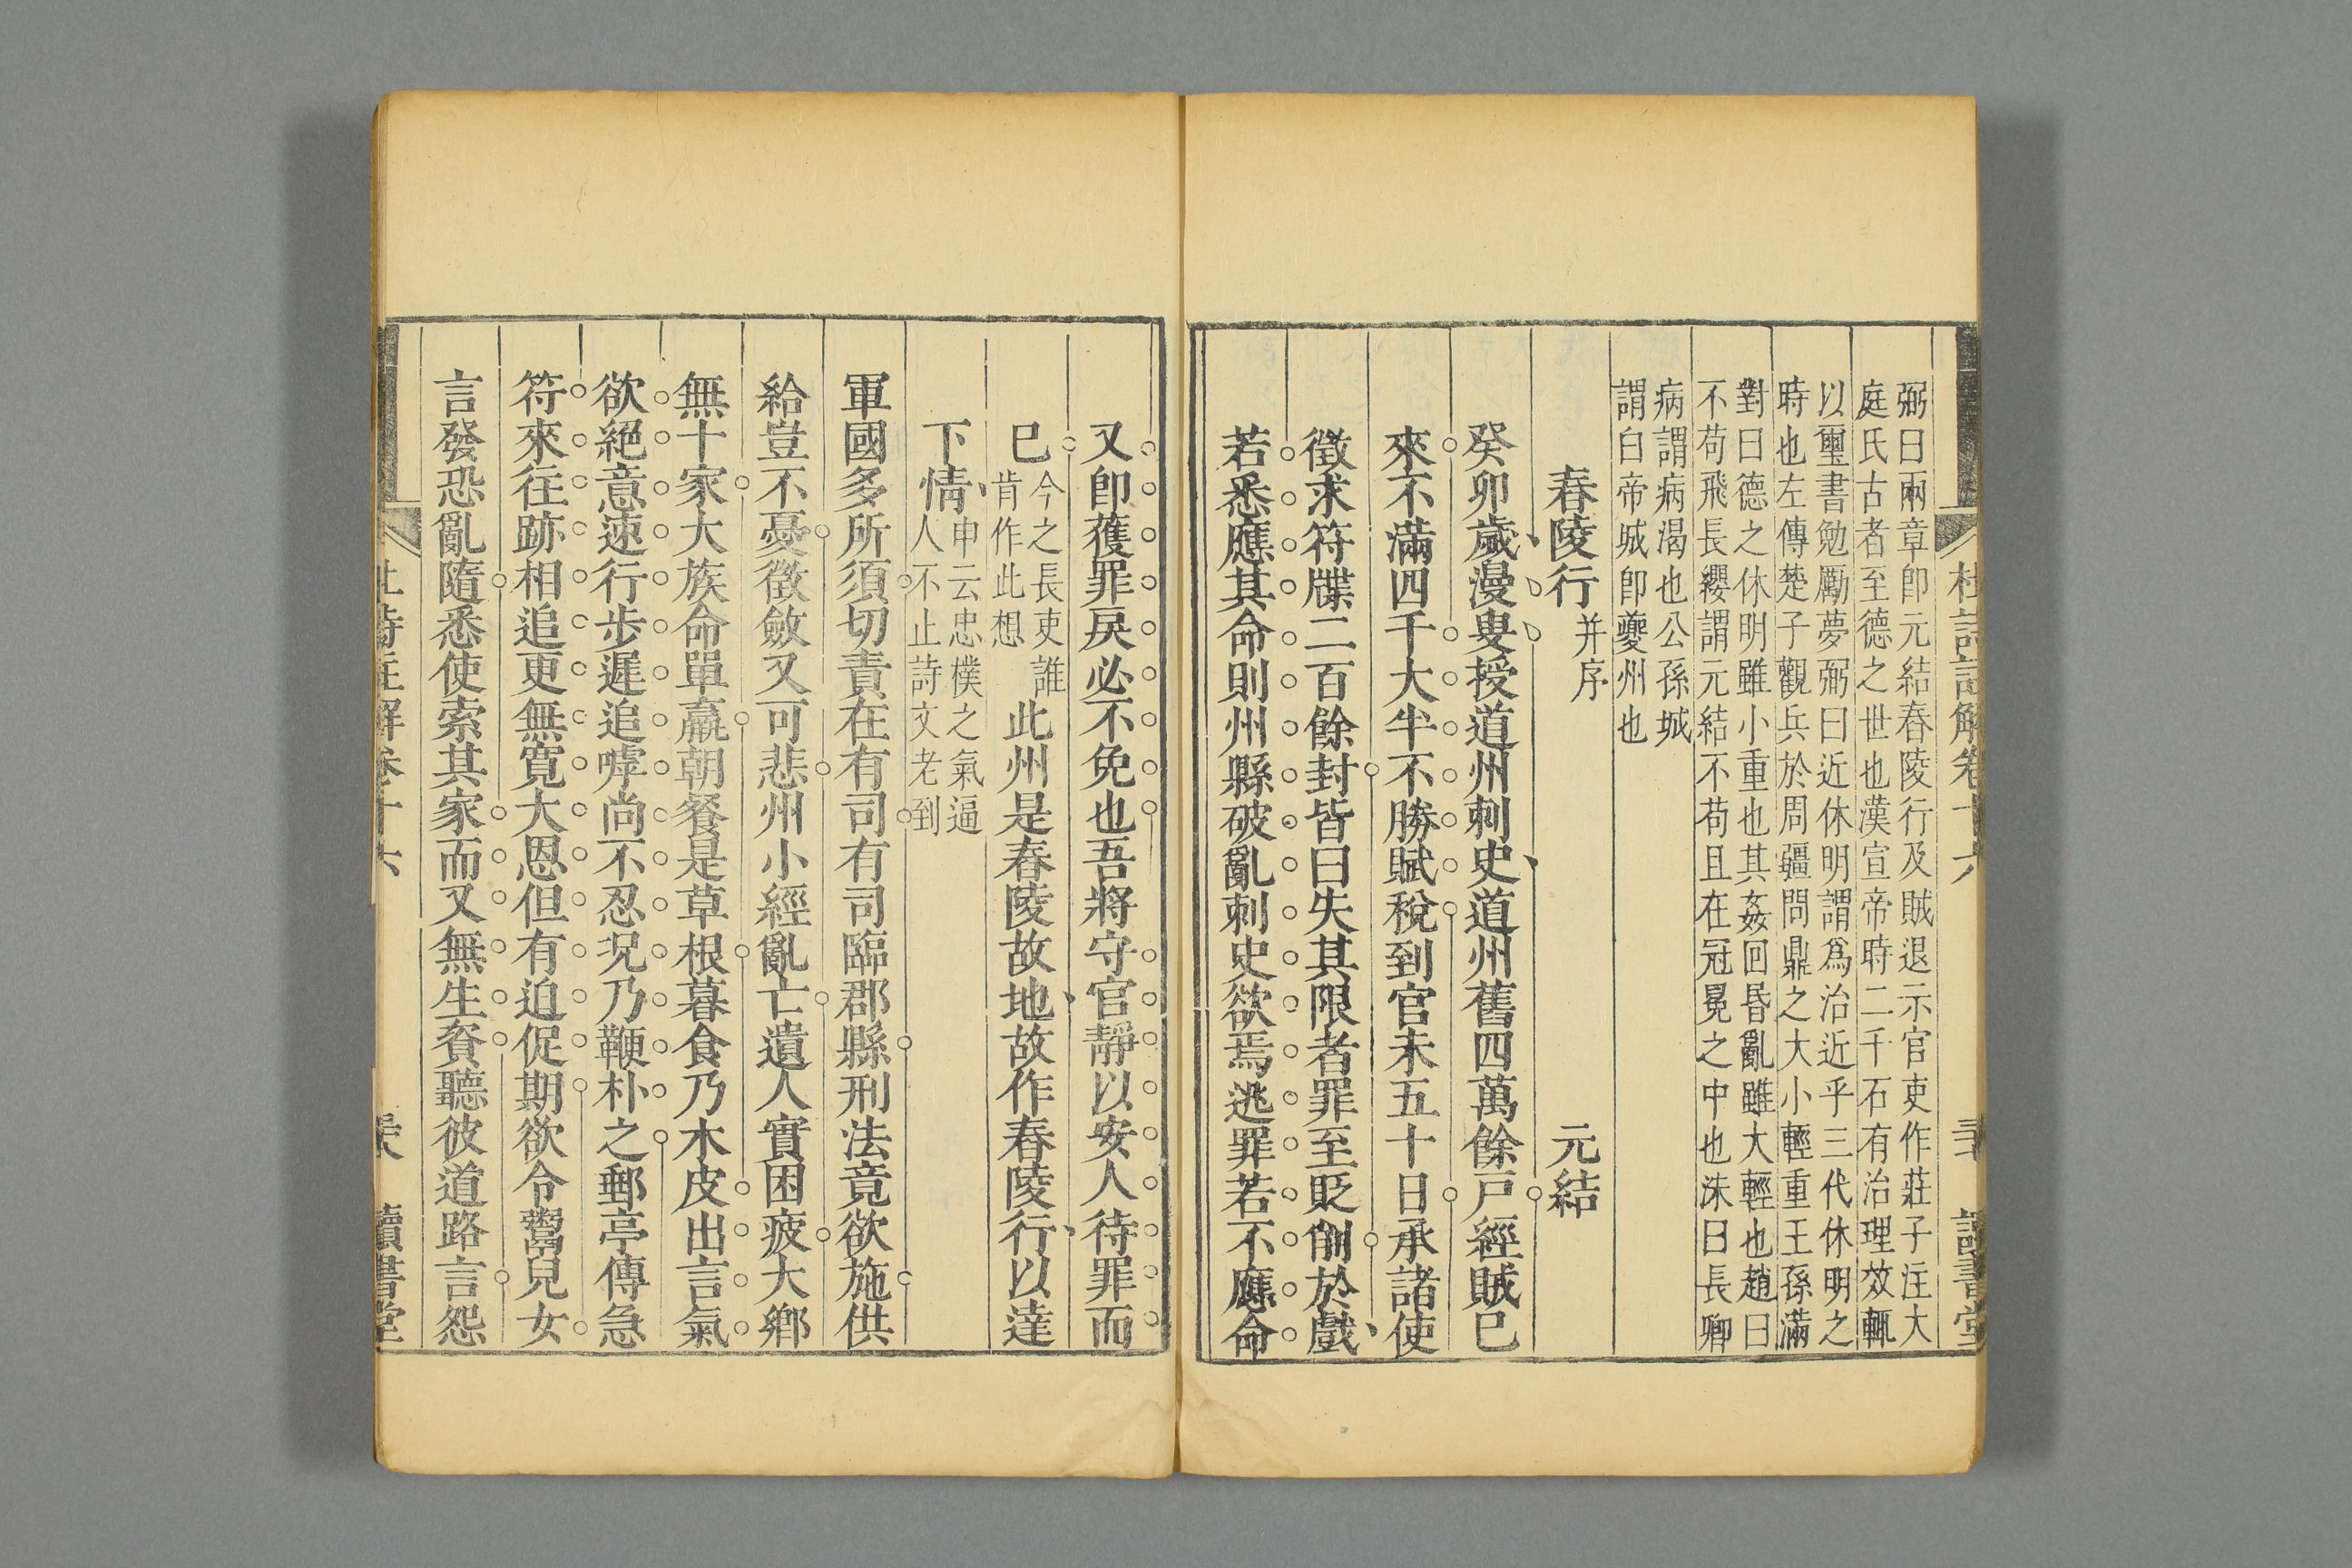 杜詩註解卷十六
讀書堂
弼曰兩章卽元結春陵行及賊退示官吏作莊子注大
庭氏古者至德之世也漢宣帝時二千石有治理效輒
以璽書勉勵夢弼曰近休明謂爲治近乎三代休明之
時也左傳楚子觀兵於周疆問鼎之大小輕重王孫滿
對曰德之休明雖小重也其姦回昏亂雖大輕也趙曰
不苟飛長纓謂元結不苟且在冠冕之中也洙曰長卿
病謂病渴也公孫城
謂白帝城卽夔州也
春陵行 并序 元結
癸卯歲漫叟授道州刺史道州舊四萬餘戸經賊巳
來不滿四千大半不勝賦稅到官未五十日承諸使
徵求符牒二百餘封皆曰失其限者罪至貶削於戲
若悉應其命則州縣破亂刺史欲焉逃罪若不應命
又卽獲罪戾必不免也吾將守官靜以安人待罪而
巳 今之長吏誰
肯作此想 此州是春陵故地故作春陵行以達
下情 申云忠樸之氣逼
人不止詩文老到
軍國多所須切責在有司有司臨郡縣刑法竟欲施供
給豈不憂徵斂又可悲州小經亂亡遺人實困疲大鄉
無十家大族命單羸朝餐是草根暮食乃木皮出言氣
欲絕意速行步遲追嘑尚不忍況乃鞭朴之郵亭傳急
符來往跡相追更無寬大恩但有迫促期欲令鬻兒女
言發恐亂隨悉使索其家而又無生資聽彼道路言怨
杜詩註解卷十六
讀書堂